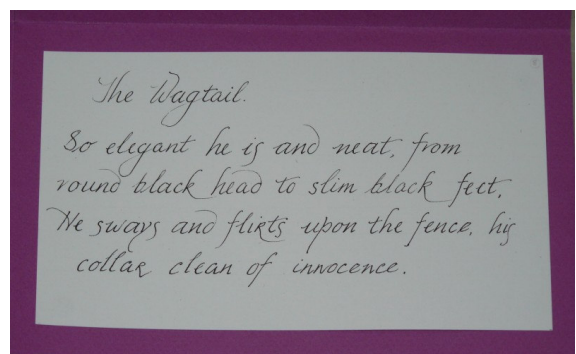 The Wagtail.
So elegant he is and neat, from
round black head to slim black feet,
He sways and flirts upon the fence, his
collar clean of innocence.